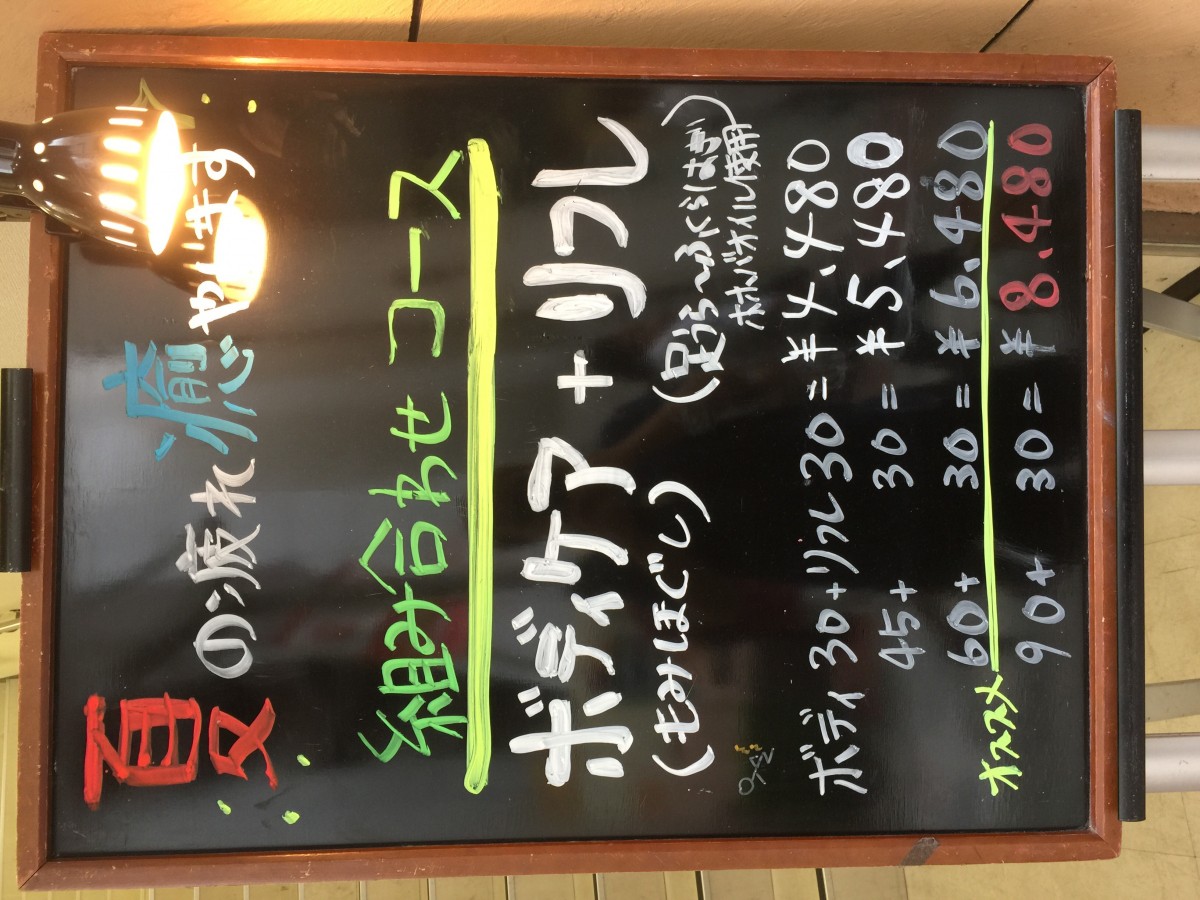 夏の疲れ癒やします
組み合わせコース
ボディケア + リフレ
(もみほぐし) (足うら〜ふくらはぎ)
ホホバオイル使用
ボディ 30+リフレ30 = ¥4,480
45+ 30 = ¥5,480
60+ 30 = ¥6,480
オススメ
90+ 30 = ¥8,480